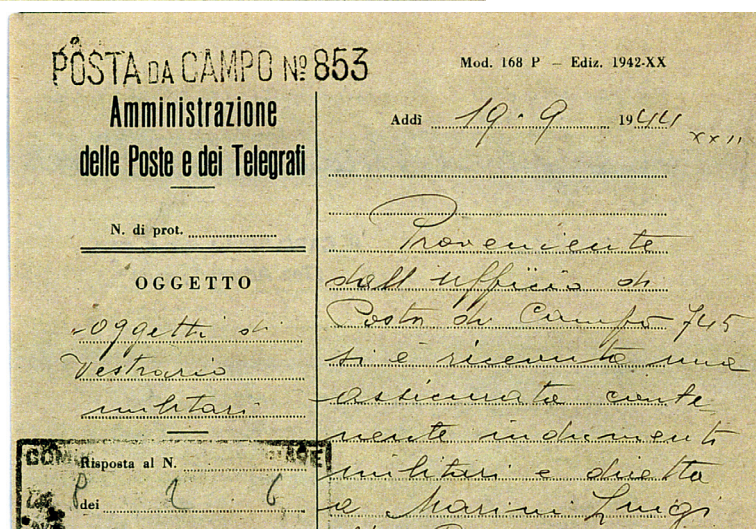 POSTA DA CAMPO Nº 853
Amministrazione
delle Poste e dei Telegrafi
N. di prot.
OGGETTO
oggetti di
Vestiario
militari
Risposta al N.
dei
Mod. 168 P – Ediz. 1942-XX
Addì 19-9 1944
XXII
Proveniente
dall'ufficio di
Posta da Campo 745
si è ricevuta una
assicurata conte
nente indumenti
militari e diretta
a Marini Luigi